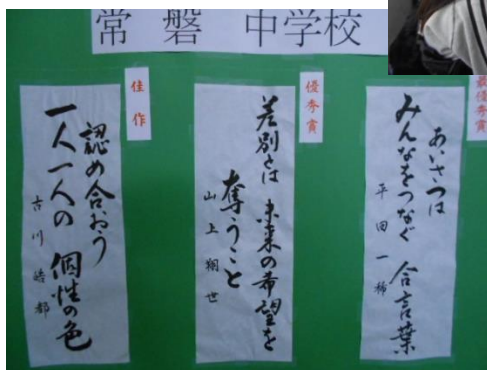 常磐 中学校
最優秀賞
あいさつは
みんなをつなぐ 合言葉
平田一稀
優秀賞
差別とは 未来の希望を
奪うこと
山上翔世
佳作
認め合おう
一人一人の 個性の色
古川